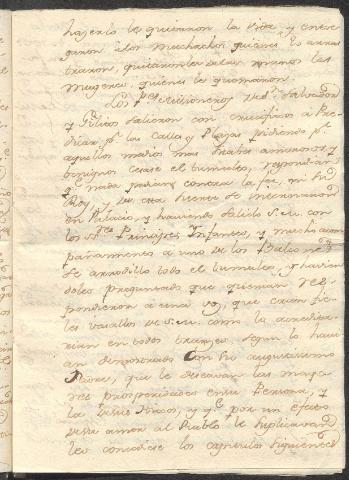 hazerlo les quitaron la vida y entre
garon a los muchachos quienes lo arras
traron, quitandoles de las manos las
Mugeres, quienes le quemaron.
Los P.es Misioneros de S.n Salvador
y Gilitos salieron con crucifixos a Pre
dicar p.r las Calles y Plazas pidiendo p.r
aquellos medios mas suabes amorosos y
benignos cesase el tumulto, respondian
q.e nada pedian contra la fee, ni su
Rey, y de esta suerte se internaron
en Palacio, y haviendo salido S. M. con
los S.res Principes, Infantes, y mucho acom
pañamiento a uno de los Balcones
se arrodillo todo el tumulto, y havien
doles preguntado que querian res
pondieron a una voz, que eran fie
les vasallos de S. M. como lo acredita
rian en todos tranzes segun lo havi
an demostrado con su augustissimo
Padre, que le deseavan las mayo
res prosperidades en su Persona, y
la de sus Hijos, y q.e por un efecto
de su amor al Pueblo le suplicavan
les concediese los capitulos siguientes